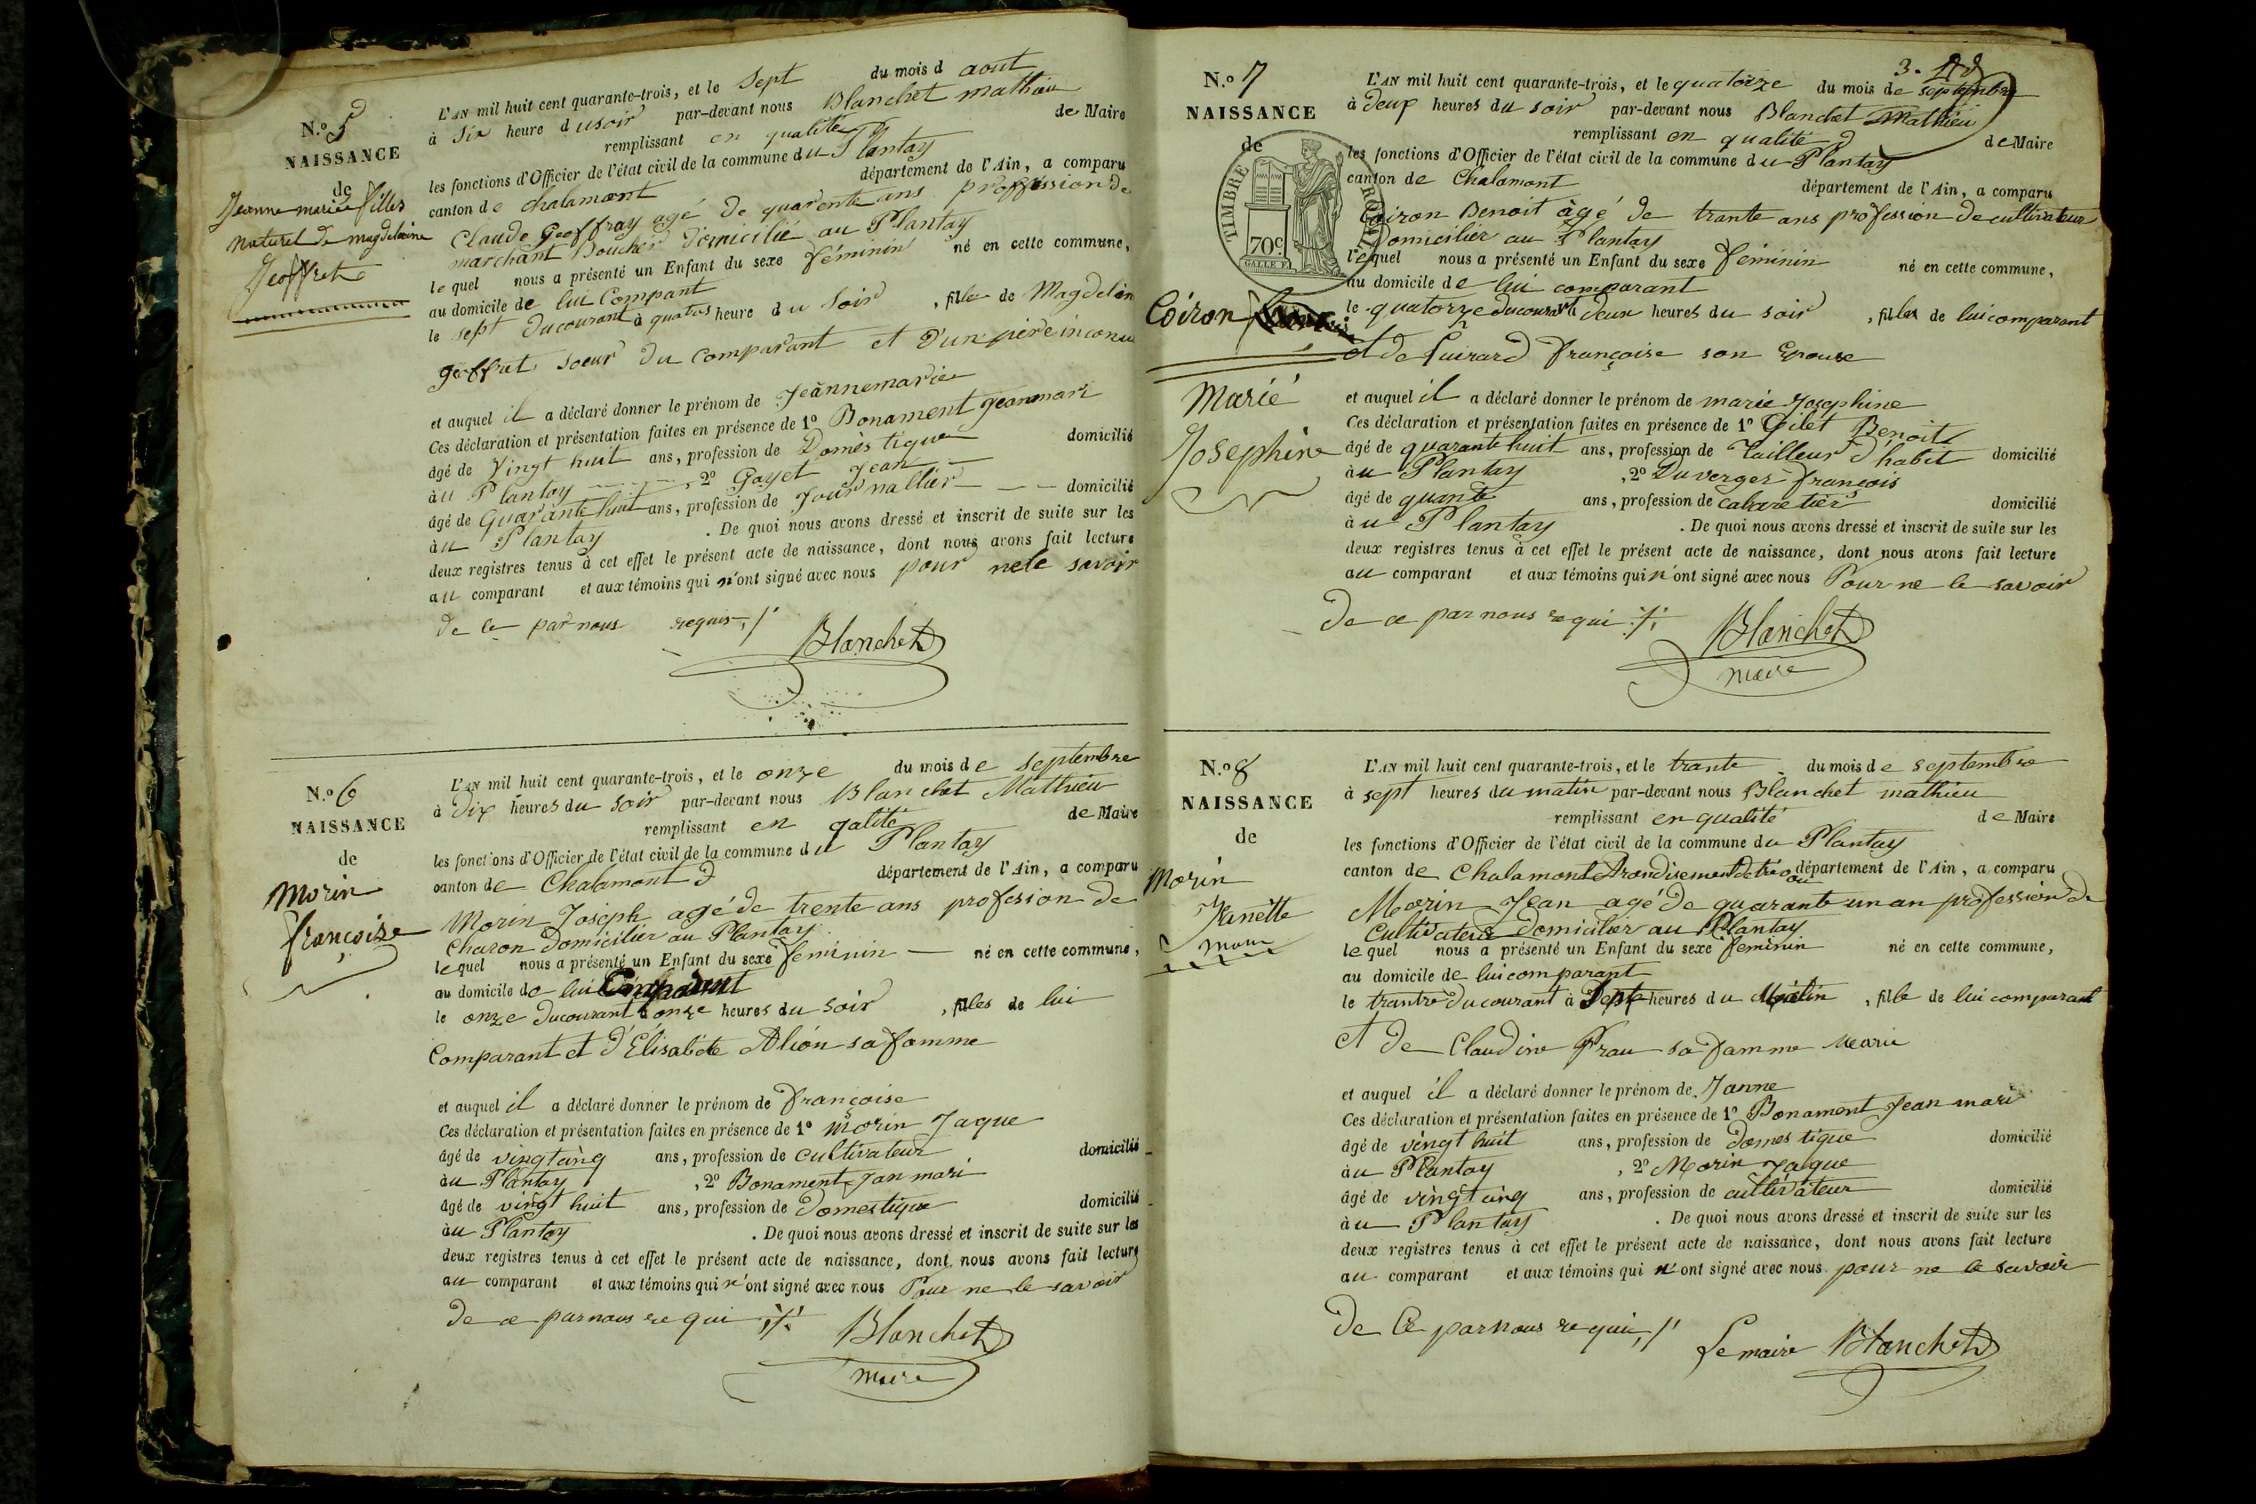 N.o 5
NAISSANCE
de
Jeanne marie filles
naturel de magdeleine
Jeoffret
L'AN mil huit cent quarante-trois, et le Sept du mois d aout
à Six heure du soir par-devant nous Blanchet mathieu
remplissant en qualité de Maire
les fonctions d'Officier de l'état civil de la commune du Plantay
canton de chalamont département de l'Ain, a comparu
Claude Geoffray agé de quarente ans proffession de
marchant Boucher domicilié au Plantay
lequel nous a présenté un Enfant du sexe féminin né en cette commune,
au domicile de lui Compant
le sept du courant à quatres heure du soir, fille de Magdelin
geffret soeur du comparant et d'un pére inconu
et auquel il a déclaré donner le prénom de Jeannemarie
Ces déclaration et présentation faites en présence de 1o Bonament jeanmari
âgé de Vingt huit ans, profession de Domèstique domicilié
à u Plantay, 2o Gayet Jean
âgé de Quarante huit ans, profession de Journallier domicilié
à u Plantay. De quoi nous avons dressé et inscrit de suite sur les
deux registres tenus à cet effet le présent acte de naissance, dont nous avons fait lecture
au comparant et aux témoins qui n'ont signé avec nous pour nele savoir
de ce par nous requis
Blanchet
N.o 6
NAISSANCE
de
Morin
françoise
L'AN mil huit cent quarante-trois, et le onze du mois de septembre
à Dix heures du soir par-devant nous Blanchet Matthieu
remplissant en qalité de Maire
les fonctions d'Officier de l'état civil de la commune du Plantay
canton de Chalamont département de l'Ain, a comparu
Morin Joseph agé de trente ans profession de
Charon Domicilier au Plantay
lequel nous a présenté un Enfant du sexe feminin né en cette commune,
au domicile de lui Comparant
le onze ducourant à onze heures du soir, filles de lui
Comparant et d'Élisabéte Alion sa famme
et auquel il a déclaré donner le prénom de françoise
Ces déclaration et présentation faites en présence de 1o Morin Jaque
âgé de vingtcinq ans, profession de cultivateur domicilié
àu Plantay, 2o Bonament Jan mari
âgé de vingt huit ans, profession de domestique domicilié
àu Plantay. De quoi nous avons dressé et inscrit de suite sur les
deux registres tenus à cet effet le présent acte de naissance, dont nous avons fait lecture
au comparant et aux témoins qui n'ont signé avec nous Pour ne le savoir
de ce par nous requi
Blanchet
maire
3.
N.o 7
NAISSANCE
de
TIMBRE ROYAL
70c
Coiron
Marié
Josephine
L'AN mil huit cent quarante-trois, et le quatorze du mois de septembre
à deux heures du soir par-devant nous Blanchet Mathieu
remplissant en qualité de Maire
les fonctions d'Officier de l'état civil de la commune du Plantay
canton de Chalamont département de l'Ain, a comparu
Coiron Benoit àgé de trante ans profession de cultivateur
Domicilier au Plantay
lequel nous a présenté un Enfant du sexe féminin né en cette commune,
au domicile de lui comparant
le quatorze ducourant à deux heures du soir, filles de luicomparant
et de Guirard françoise son Epouse
et auquel il a déclaré donner le prénom de marie Josephine
Ces déclaration et présentation faites en présence de 1o Gilet Benoit
âgé de quarante huit ans, profession de Tailleur d'habit domicilié
àu Plantay, 2o Duverger françois
âgé de quante ans, profession de cabaretier domicilié
à u Plantay. De quoi nous avons dressé et inscrit de suite sur les
deux registres tenus à cet effet le présent acte de naissance, dont nous avons fait lecture
au comparant et aux témoins qui n'ont signé avec nous Pour ne le savoir
De ce par nous requi
Blanchet
maire
N.o 8
NAISSANCE
de
Morin
Janette
L'AN mil huit cent quarante-trois, et le trante du mois de septembre
à sept heures du matin par-devant nous Blanchet mathieu
remplissant en qualité de Maire
les fonctions d'Officier de l'état civil de la commune du Plantay
canton de Chalamont Arondisement detrévou département de l'Ain, a comparu
Morin Jean agé de quarante un an profession de
Cultivateur domicilier au Plantay
lequel nous a présenté un Enfant du sexe feminin né en cette commune,
au domicile de lui comparant
le trantre ducourant à Sept heures du Matin, fille de lui comparant
et de Claudine Prau sa famme Marie
et auquel il a déclaré donner le prénom de Janne
Ces déclaration et présentation faites en présence de 1o Bonament Jean mari
âgé de vingt huit ans, profession de domestique domicilié
àu Plantay, 2o Morin Jaque
âgé de vingtcinq ans, profession de cultivateur domicilié
à u Plantay. De quoi nous avons dressé et inscrit de suite sur les
deux registres tenus à cet effet le présent acte de naissance, dont nous avons fait lecture
au comparant et aux témoins qui n'ont signé avec nous pour ne le savoir
de ce par nous requi
Le maire Blanchet